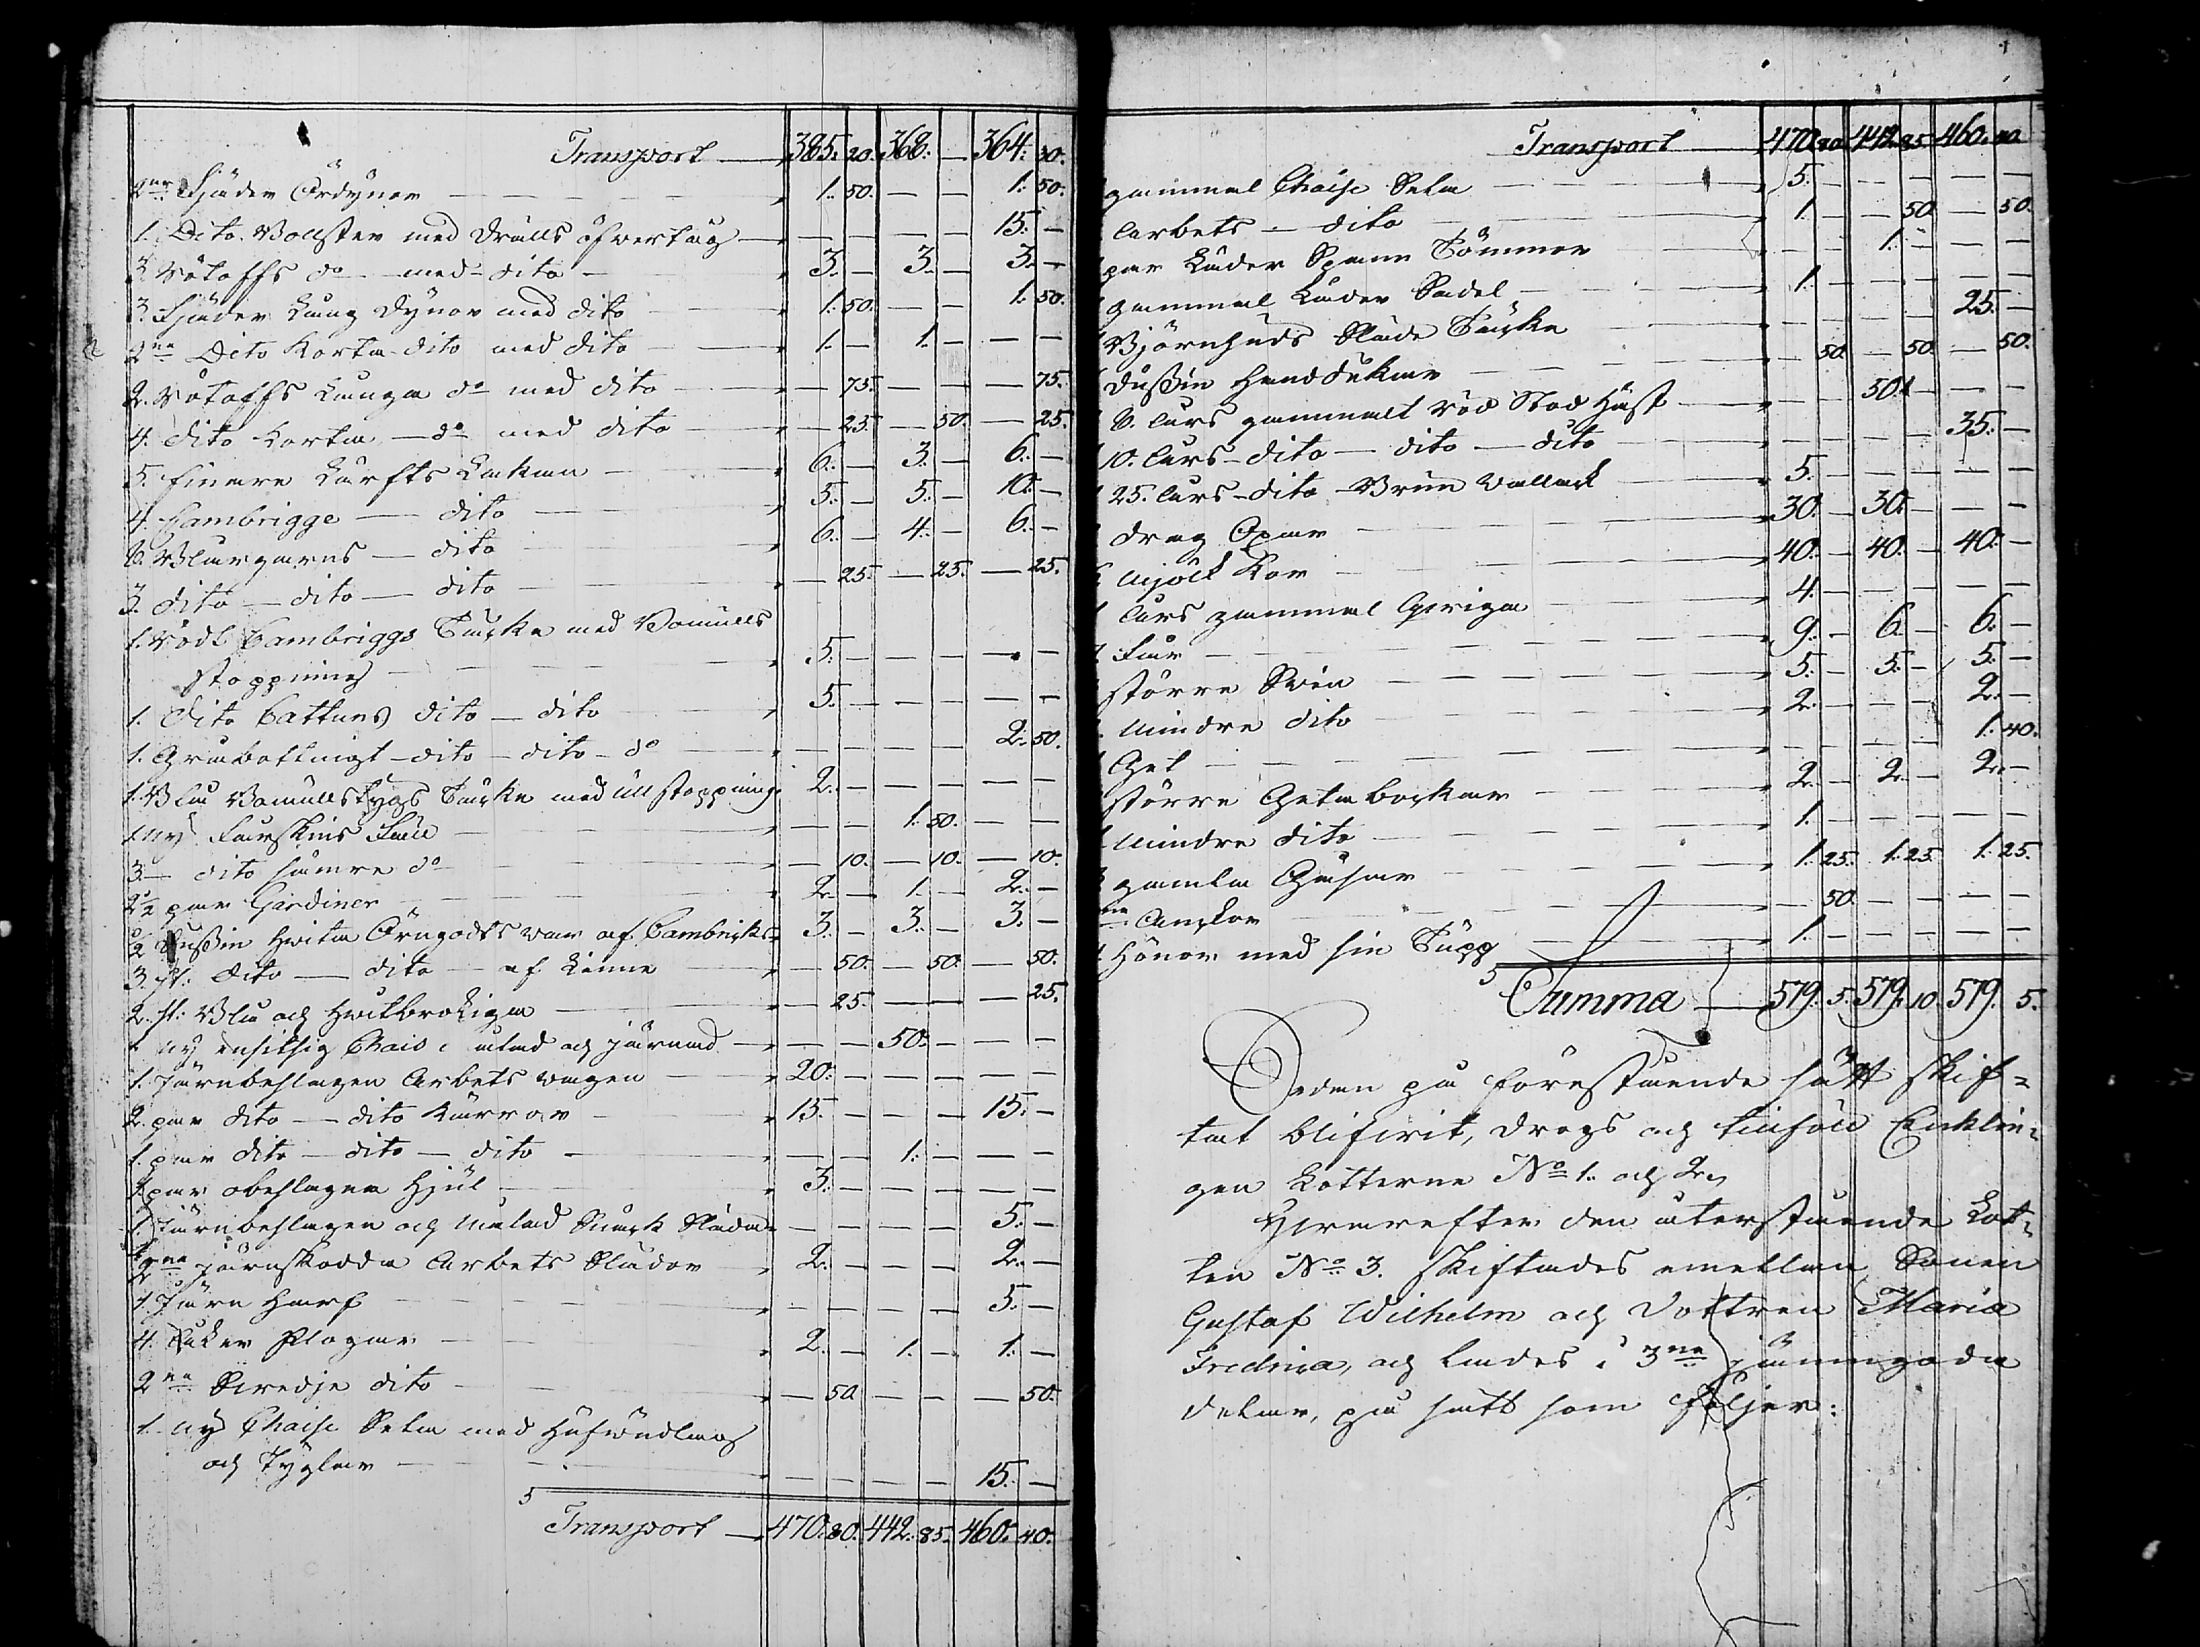 Transport — 385. 20. 368. — 364. 30.
2ne Fjäder Ördynor — 1. 50. — — 1. 50.
1. Dito Bollster med Drälls öfvertag — — — — — 15. —
3. Rötaffs do med dito — 3. — 3. — 3. —
3. Fjäder Lång Dynor med dito — 1. 50. — — 1. 50.
2ne Dito Korta dito med dito — 1. — 1. — — —
2. Rötaffs Långa do med dito — — 75. — — — 75.
4. dito korta — do med dito — — 25. — 50. — 25.
5. finare Lärfts Lakan — 6. — 3. — 6. —
4. Cambrigge — dito — 5. — 5. — 10. —
6. Blargarns — dito — 6. — 4. — 6. —
3. dito — dito — dito — — 25. — 25. — 25.
1. Rödt Cambriggs Täcke med Bomulls
stoppning — 5. — — — — —
1. dito Cattuns dito — dito — 5. — — — — —
1. Gråbottnigt dito — dito — do — — — — — 2. 50.
1. Blå Bomullstygs Täcke med ull stoppning 2. — — — — —
1. ny Fårskins Fäll — — — 1. 50. — —
3 — dito sämre do — — 10. — 10. — 10.
2½ par Gardiner — 2. — 1. — 2. —
½ Dussin hvita Örngodts var af Cambricks 3. — 3. — 3. —
3. st: dito — dito — af Linne — — 50. — 50. — 50.
2. st: Blå och hvitbrokiga — — 25. — — — 25.
1 ny ensitsig Chais målad och järnad — — — 50. — — —
1. Järnbeslagen Arbets vagn — 20. — — — — —
2. par dito — dito Kärror — 15. — — — 15. —
1. par dito — dito — dito — — — 1. — — —
par obeslagna hjul — 3. — — — — —
1. Järnbeslagen och målad Släda — — — — 5. —
2ne järnskodda Arbets Slädor — 2. — — — 2. —
1. Järn Harf — — — — — 5. —
4. Åker Plogar — 2. — 1. — 1. —
2ne Svedje dito — — 50 — — — 50.
1. ny Chaise Sela med hufvudlag
och Tyglar — — — — — 15. —
Transport — 470. 80. 442. 85. 460. 40.
Transport — 470. 80 442. 85. 460. 40
gammal Chaise Sela — 5. — — — — —
Arbets — dito — 1. — — 50 — 50.
par Läder Spann Tömmar — — — 1. — — —
gammal Läder Sadel — 1. — — — — —
Björnhuds Släde Täcke — — — — — 25. —
dussin handdukar — — 50. — 50. — 50.
6. Års gammalt röd Sto Häst — — — 50. — — —
10. Års dito — dito — dito — — — — — 35. —
25. Års dito Brun Vallack — 5. — — — — —
drag Oxar — 30. — 30. — — —
mjölk Kor — 40. — 40. — 40. —
Års gammal Qviga — 4. — — — — —
Får — 9. — 6. — 6. —
större Svin — 5. — 5. — 5. —
mindre dito — 2. — — — 2. —
Get — — — — — 1. 40.
större Geta bockar — 2. — 2. — 2. —
mindre dito — 1. — — — — —
gamla Gäss — 1. 25. 1. 25. 1. 25.
Anckor — — 50. — — — —
hönor med sin Tupp — 1. — — — — —
Summa — 579. 5. 579. 10. 579. 5.
Sedan på förestående sätt skif-
tat blifvit, drogs och tillföll Enklin-
gen Lotterne No 1. och 2.
Hvarefter den återstående Lot-
ten No 3. skiftades emellan Sonen
Gustaf Wilhelm och Dottren Maria
Fredrica, och lades i 3ne jämngoda
delar, på sätt som följer: